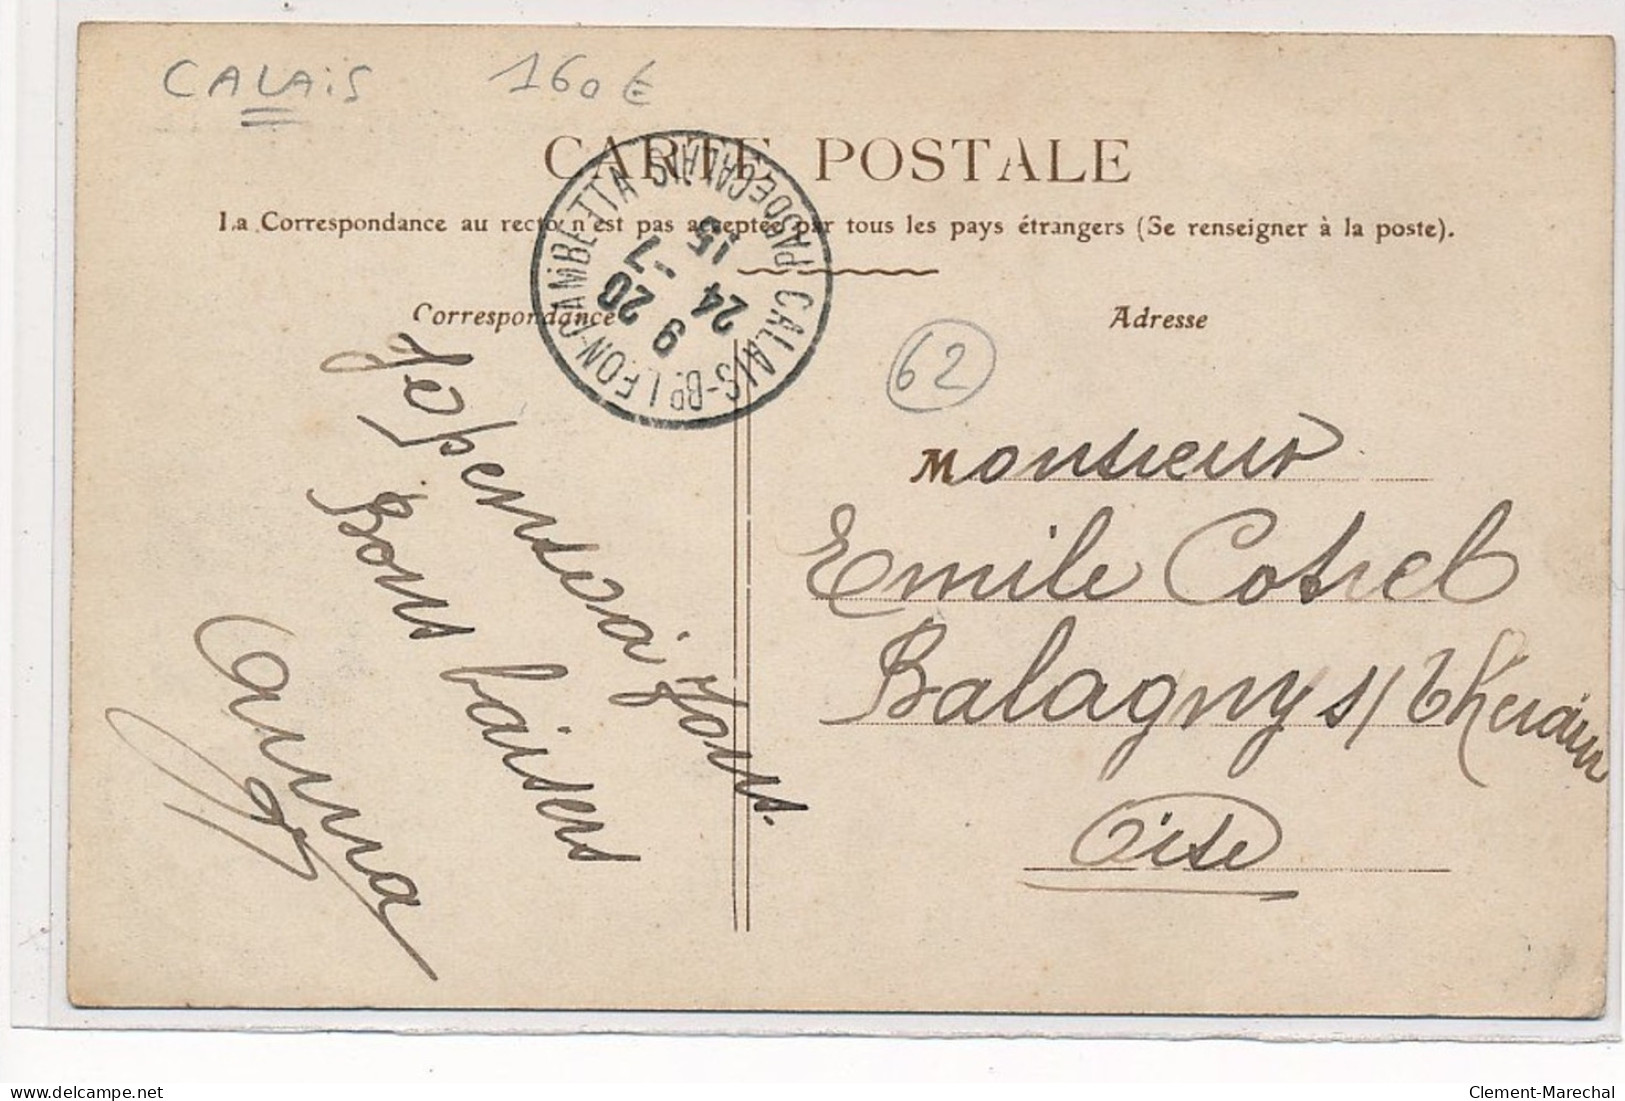 CALAIS 160€
CARTE POSTALE
La Correspondance au recto n'est pas acceptée par tous les pays étrangers (Se renseigner à la poste).
CALAIS-Bd LEON-GAMBETTA
PAS DE CALAIS
9 20
24 -7
15
Correspondance
Je pense à
vous.
Bons baisers
Anna
Adresse
62
Monsieur
Emile Cotrel
Balagny s/ Therain
Oise
delcampe.net
Clement-Marechal